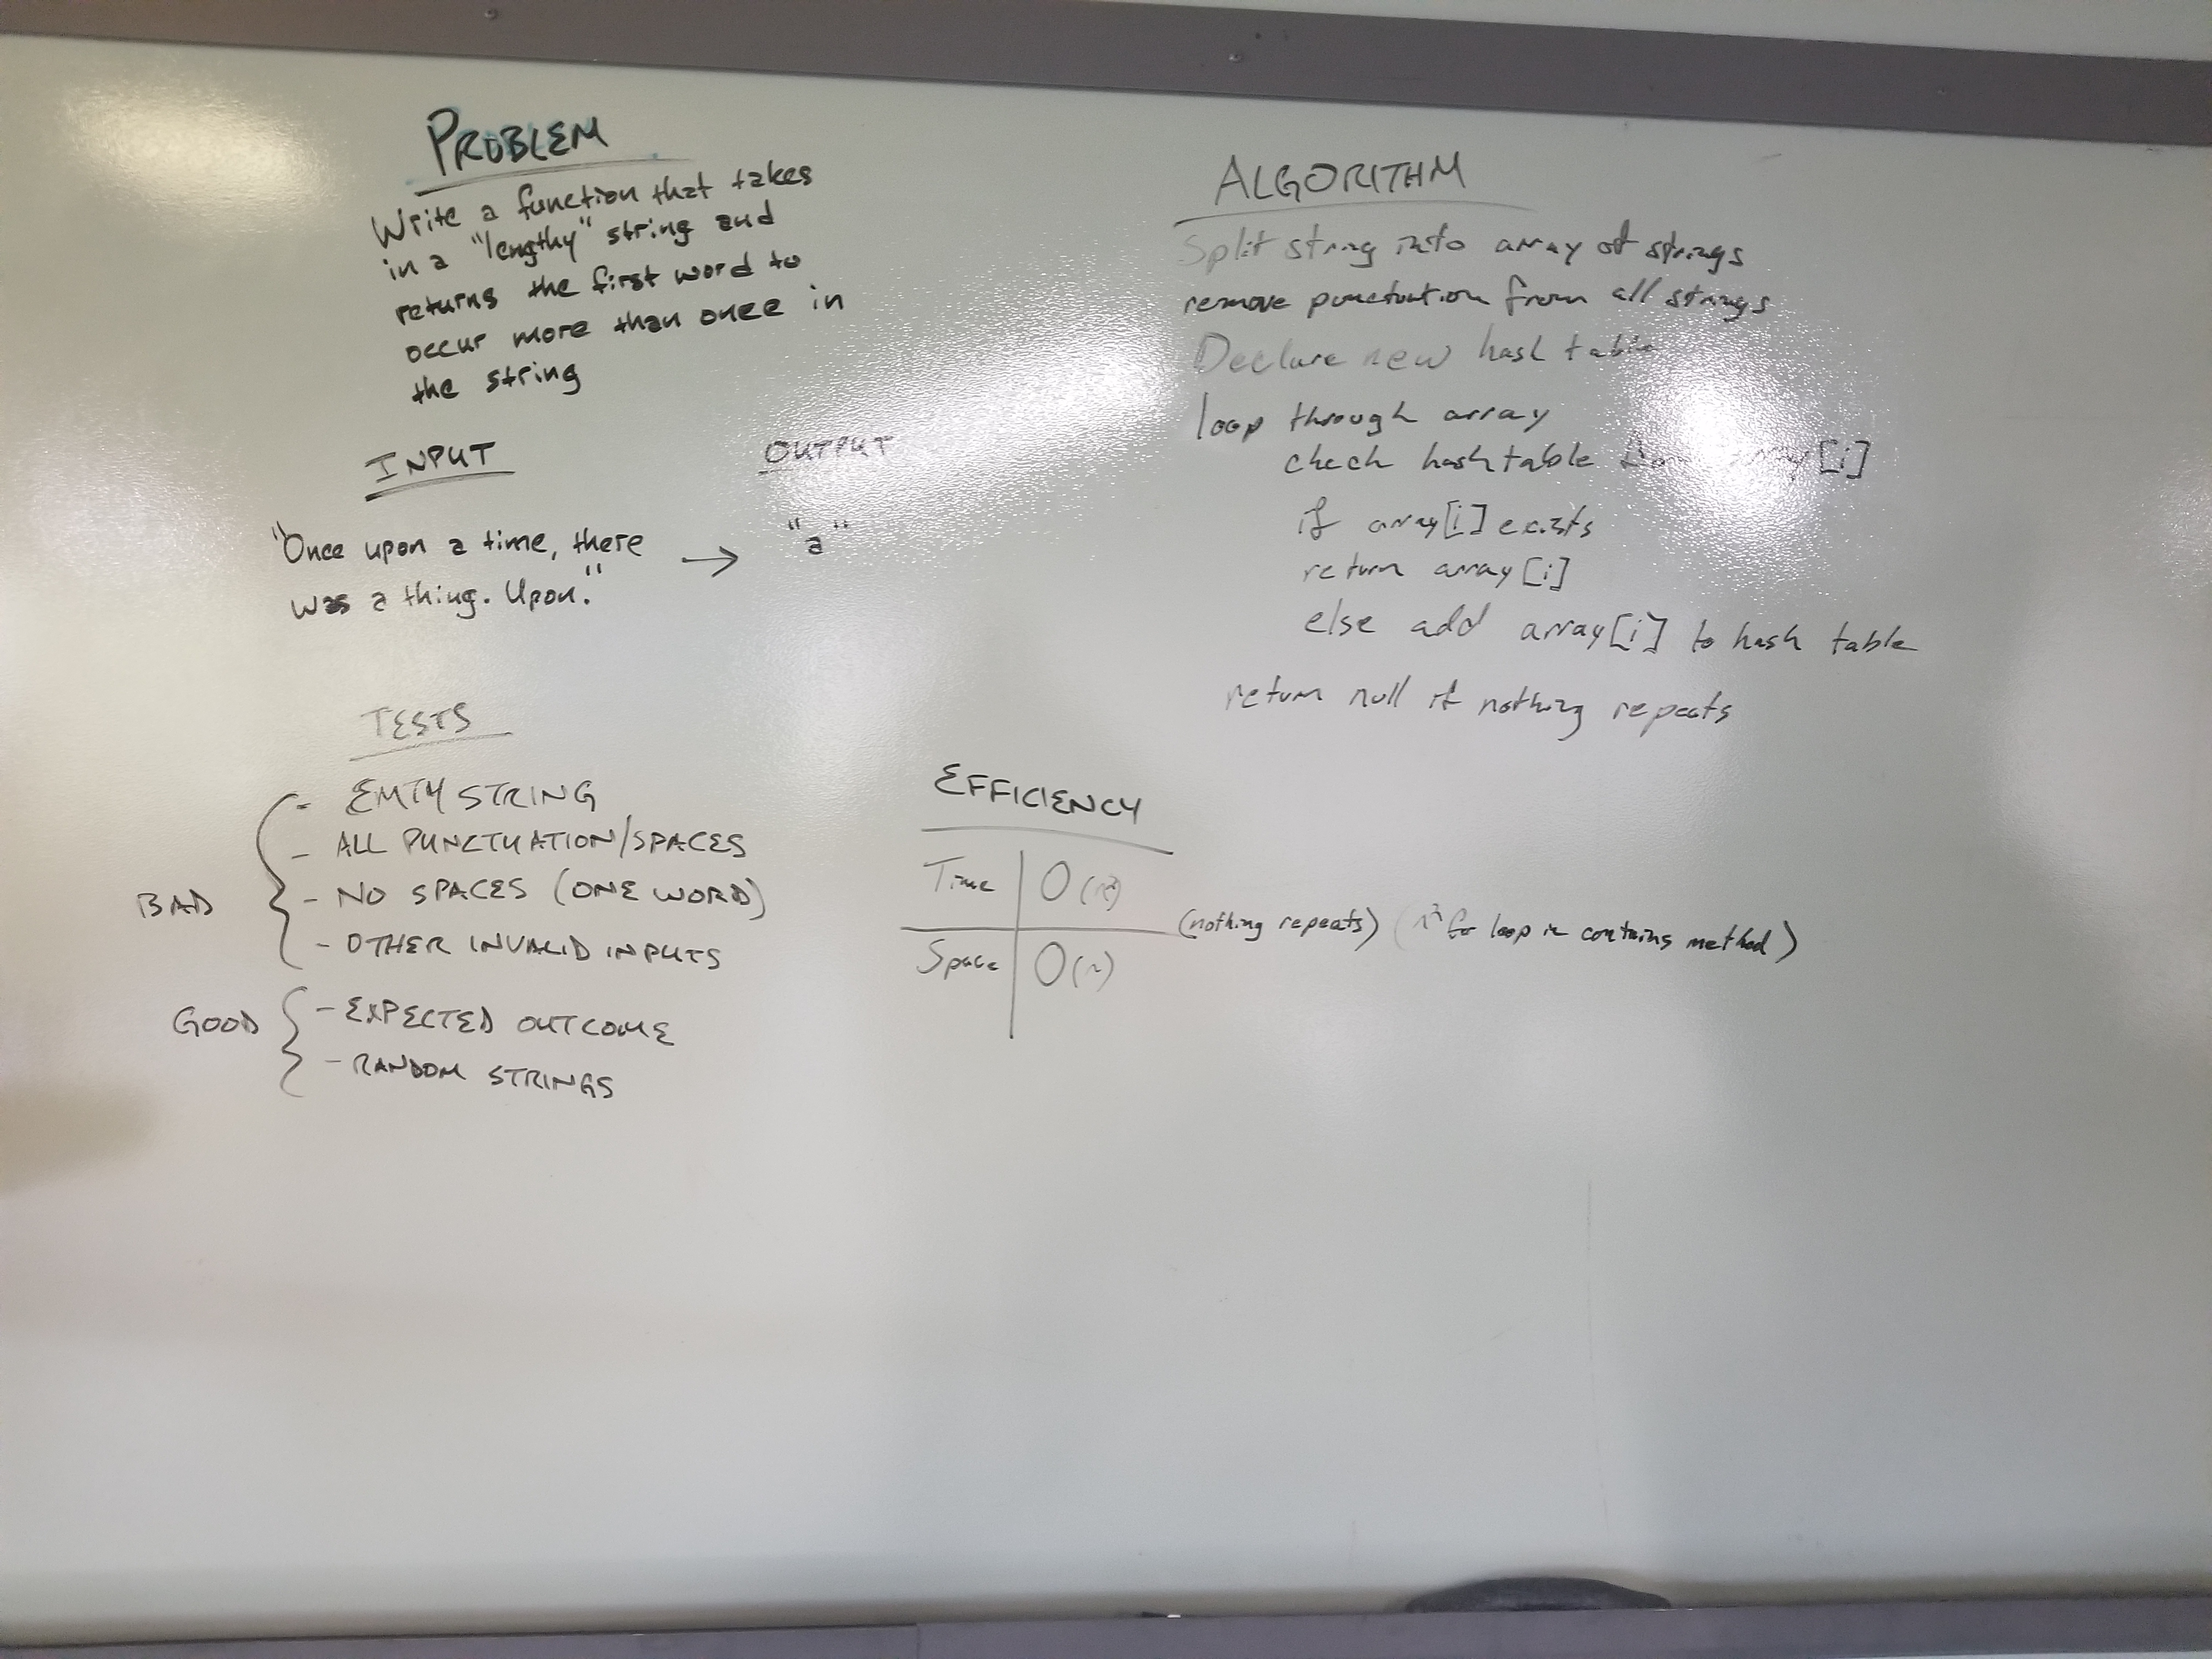 PROBLEM
Write a function that takes
in a "lengthy" string and
returns the first word to
occur more than once in
the string
INPUT
OUTPUT
"Once upon a time, there
was a thing. Upon."
→ "a"
TESTS
BAD
- EMTY STRING
- ALL PUNCTUATION/SPACES
- NO SPACES (ONE WORD)
- OTHER INVALID INPUTS
GOOD
- EXPECTED OUTCOME
- RANDOM STRINGS
ALGORITHM
Split string into array of strings
remove punctuation from all strings
Declare new hash table
loop through array
check hashtable [i]
if array[i] exists
return array[i]
else add array[i] to hash table
return null if nothing repeats
EFFICIENCY
Time O(n²)
(nothing repeats) (n² for loop in contains method)
Space O(n)